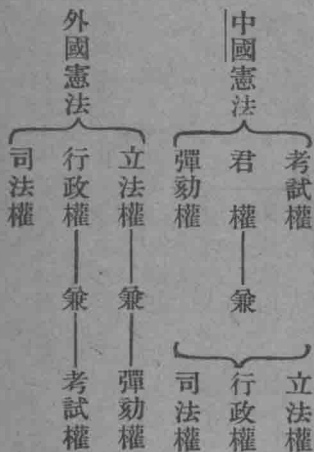 中國憲法
考試權
君權——兼
立法權
行政權
司法權
彈劾權
外國憲法
立法權——兼——彈劾權
行政權——兼——考試權
司法權